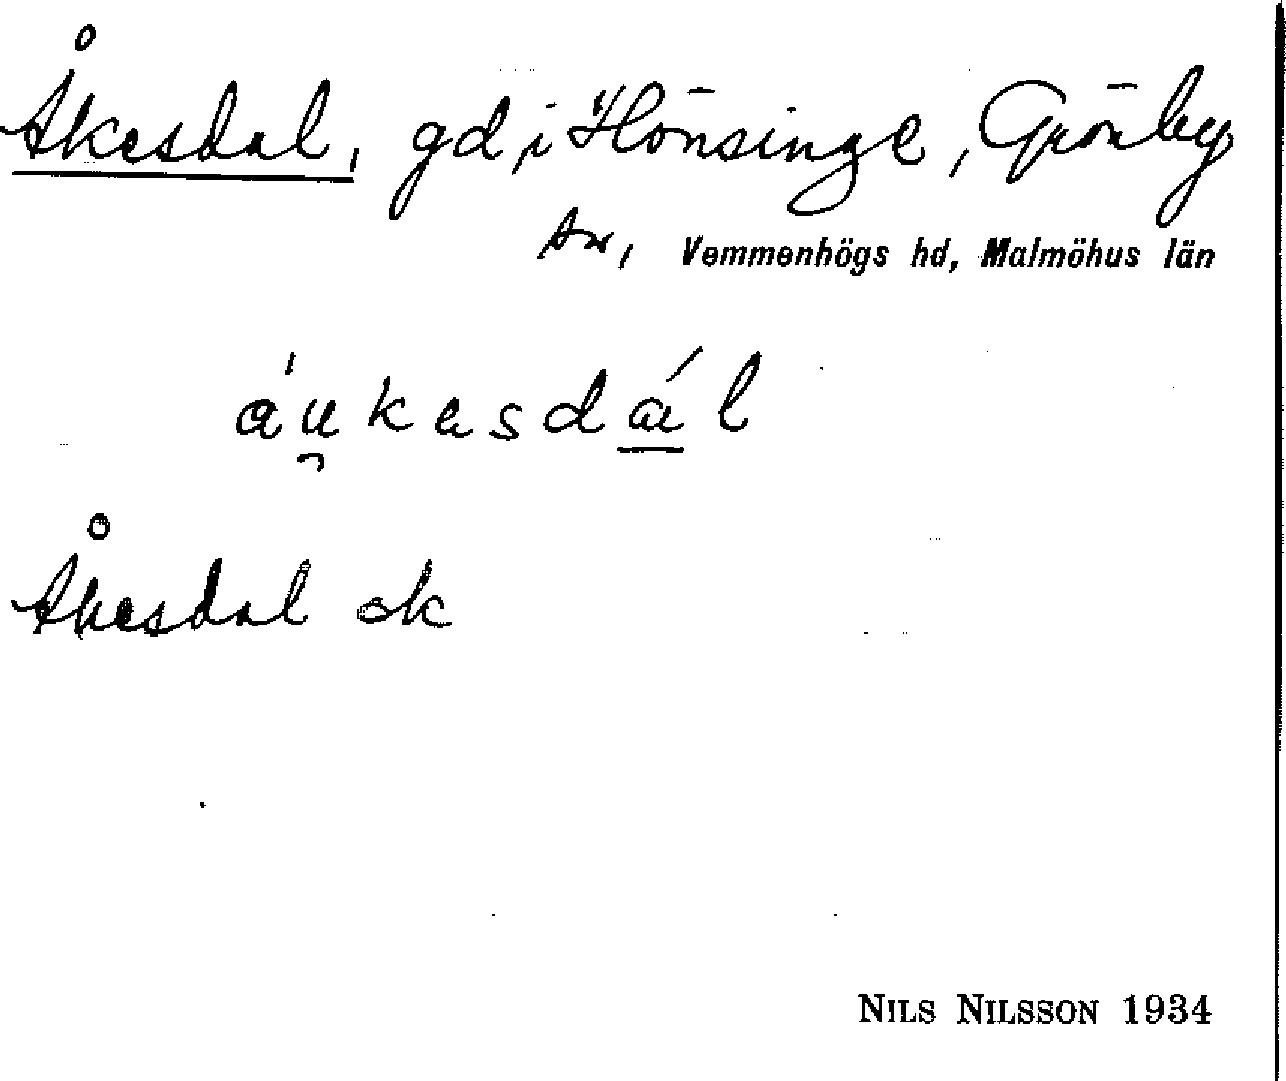 Åkesdal, gd, i Hönsinge, Grönby
sn, Vemmenhögs hd, Malmöhus län
áu̯kesdál
Åkesdal ek
NILS NILSSON 1934